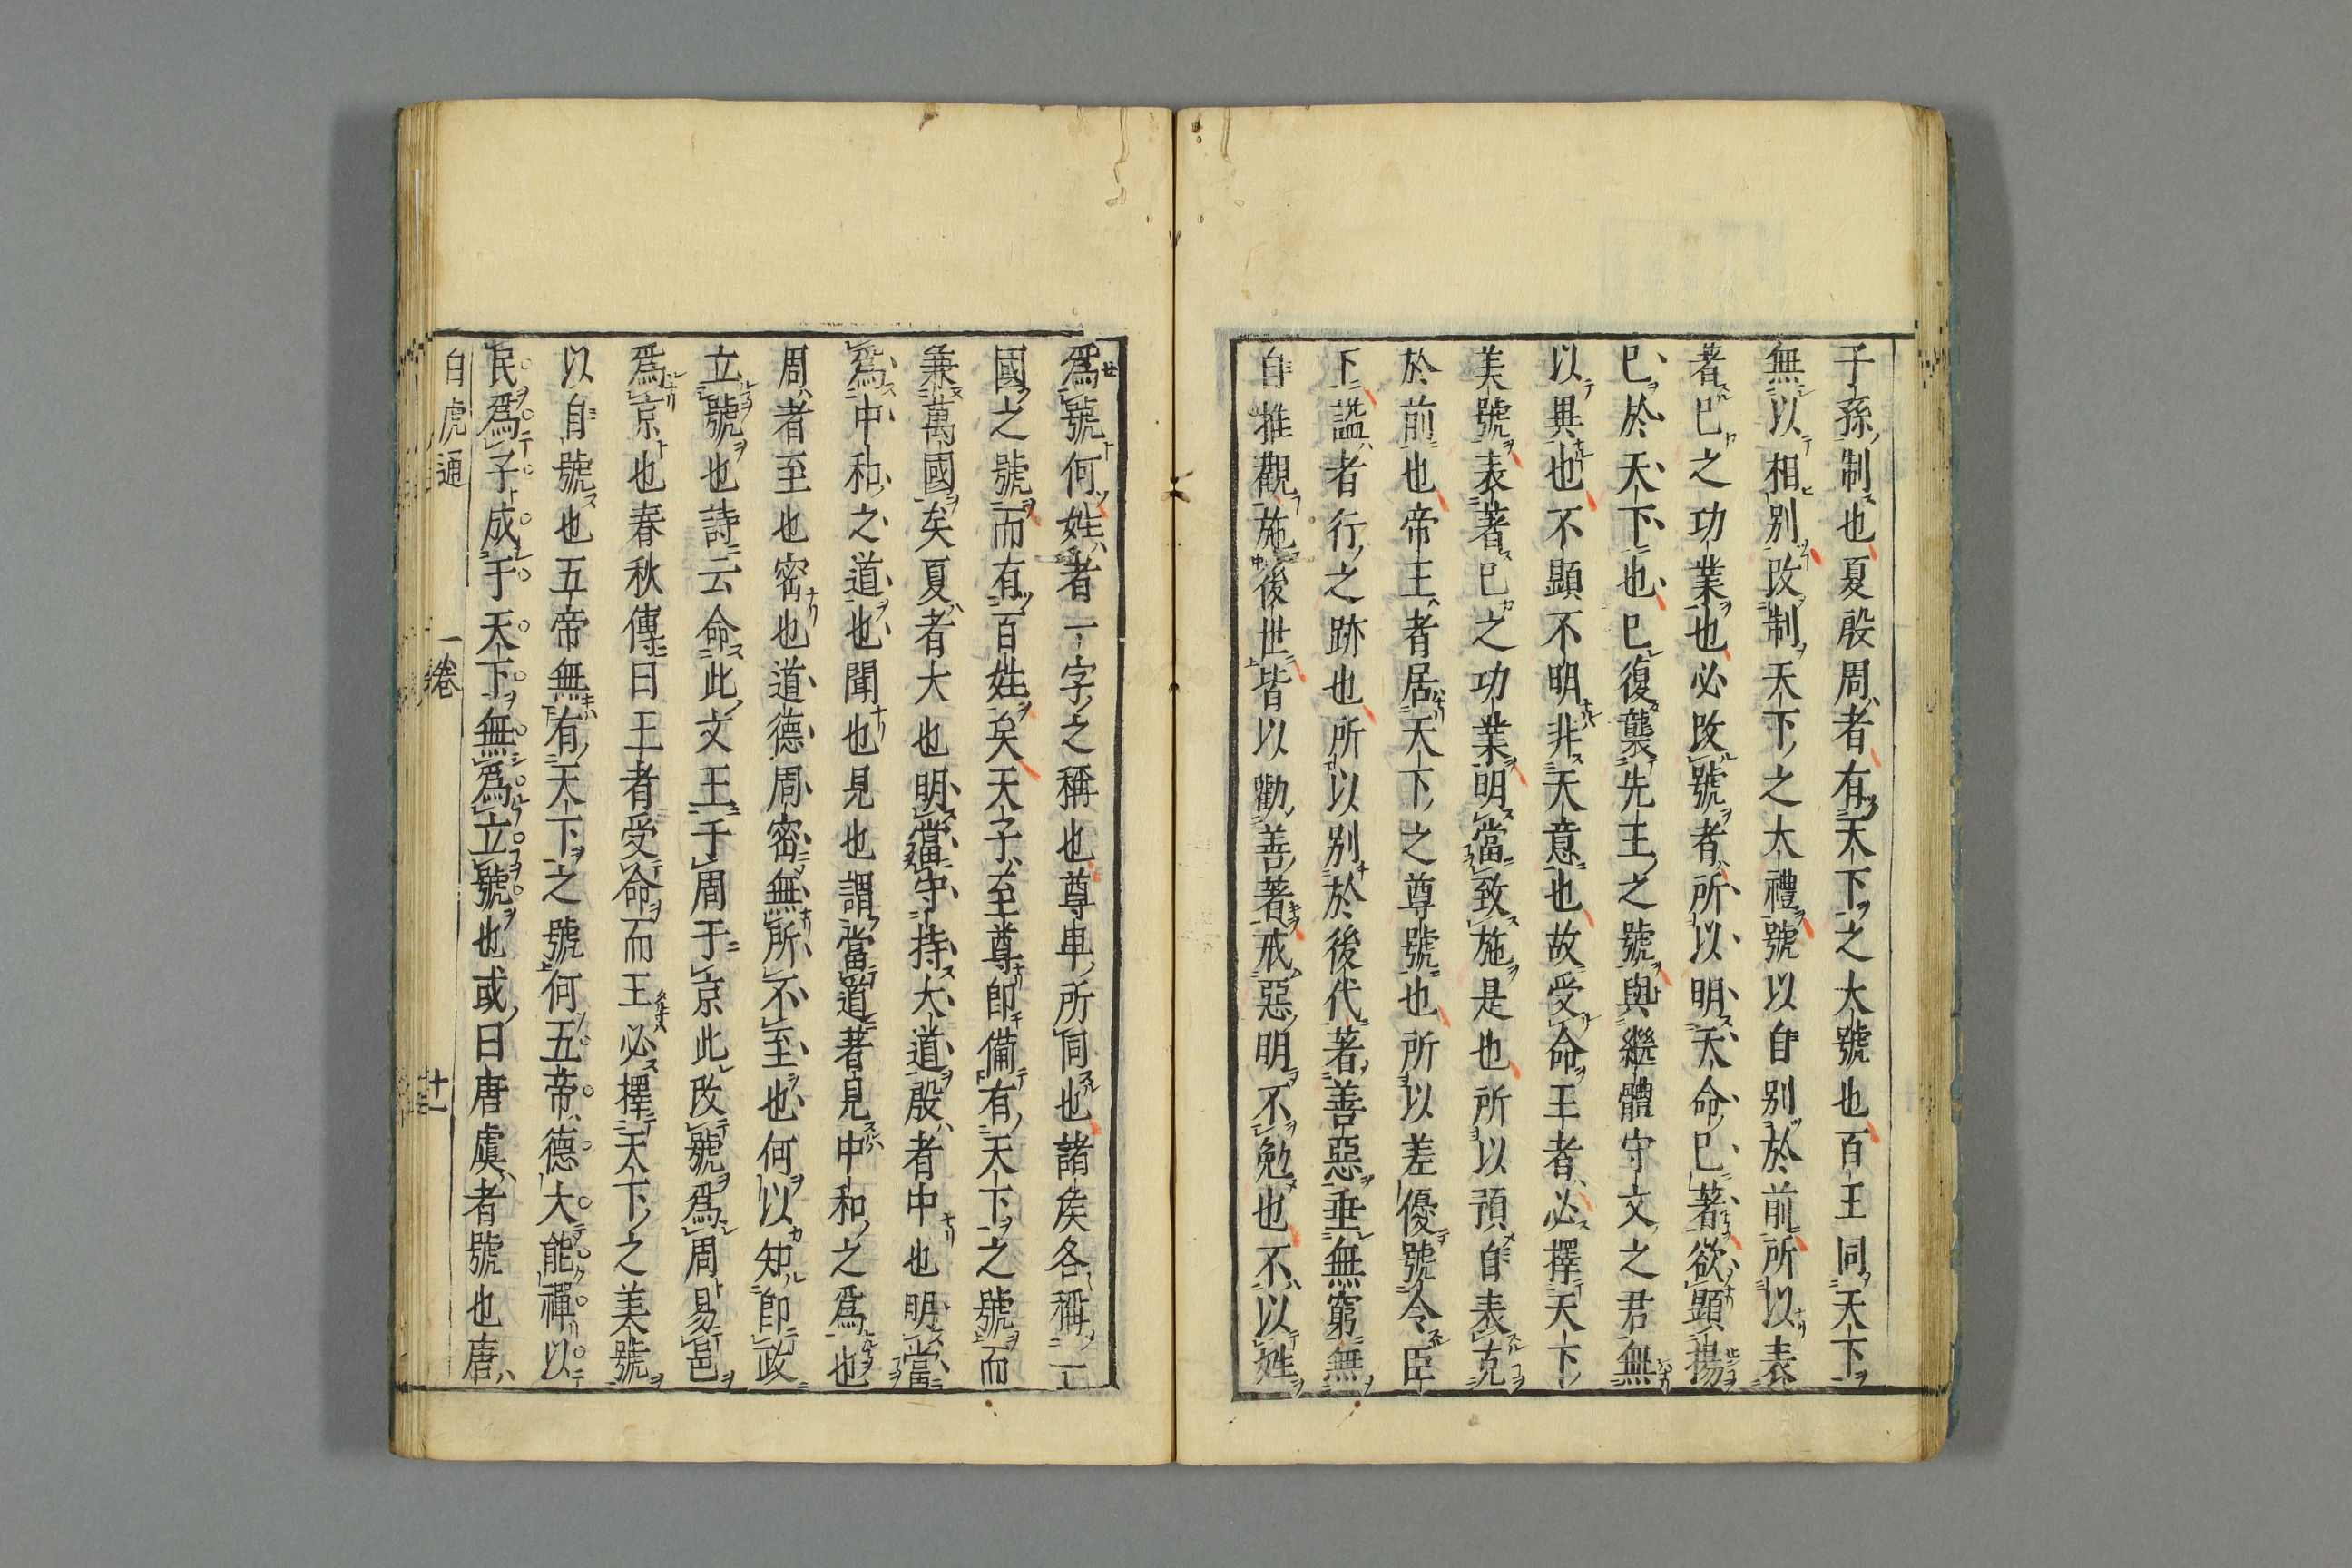 子孫制也夏殷周者有天下之大號也百王同天下
無以相别改制天下之大禮號以自别於前所以表
著已之功業也必改號者所以明天命已著欲顯揚
已於天下也已復襲先王之號與繼體守文之君無
以異也不顯不明非天意也故受命王者必擇天下
美號表著已之功業明當致施是也所以預自表克
於前也帝王者居天下之尊號也所以差優號令臣
下諡者行之跡也所以别於後代著善惡垂無窮無
自推觀施後世皆以勸善著戒惡明不勉也不以姓
爲號何姓者一字之稱也尊卑所同也諸矦各稱一
國之號而有百姓矣天子至尊即備有天下之號而
兼萬國矣夏者大也明當守持大道殷者中也明當
爲中和之道也聞也見也謂當道著見中和之爲也
周者至也密也道德周密無所不至也何以知即政
立號也詩云命此文王于周于京此改號爲周易邑
爲京也春秋傳曰王者受命而王必擇天下之美號
以自號也五帝無有天下之號何五帝德大能禪以
民爲子成于天下無爲立號也或曰唐虞者號也唐
白虎通 一卷 十一